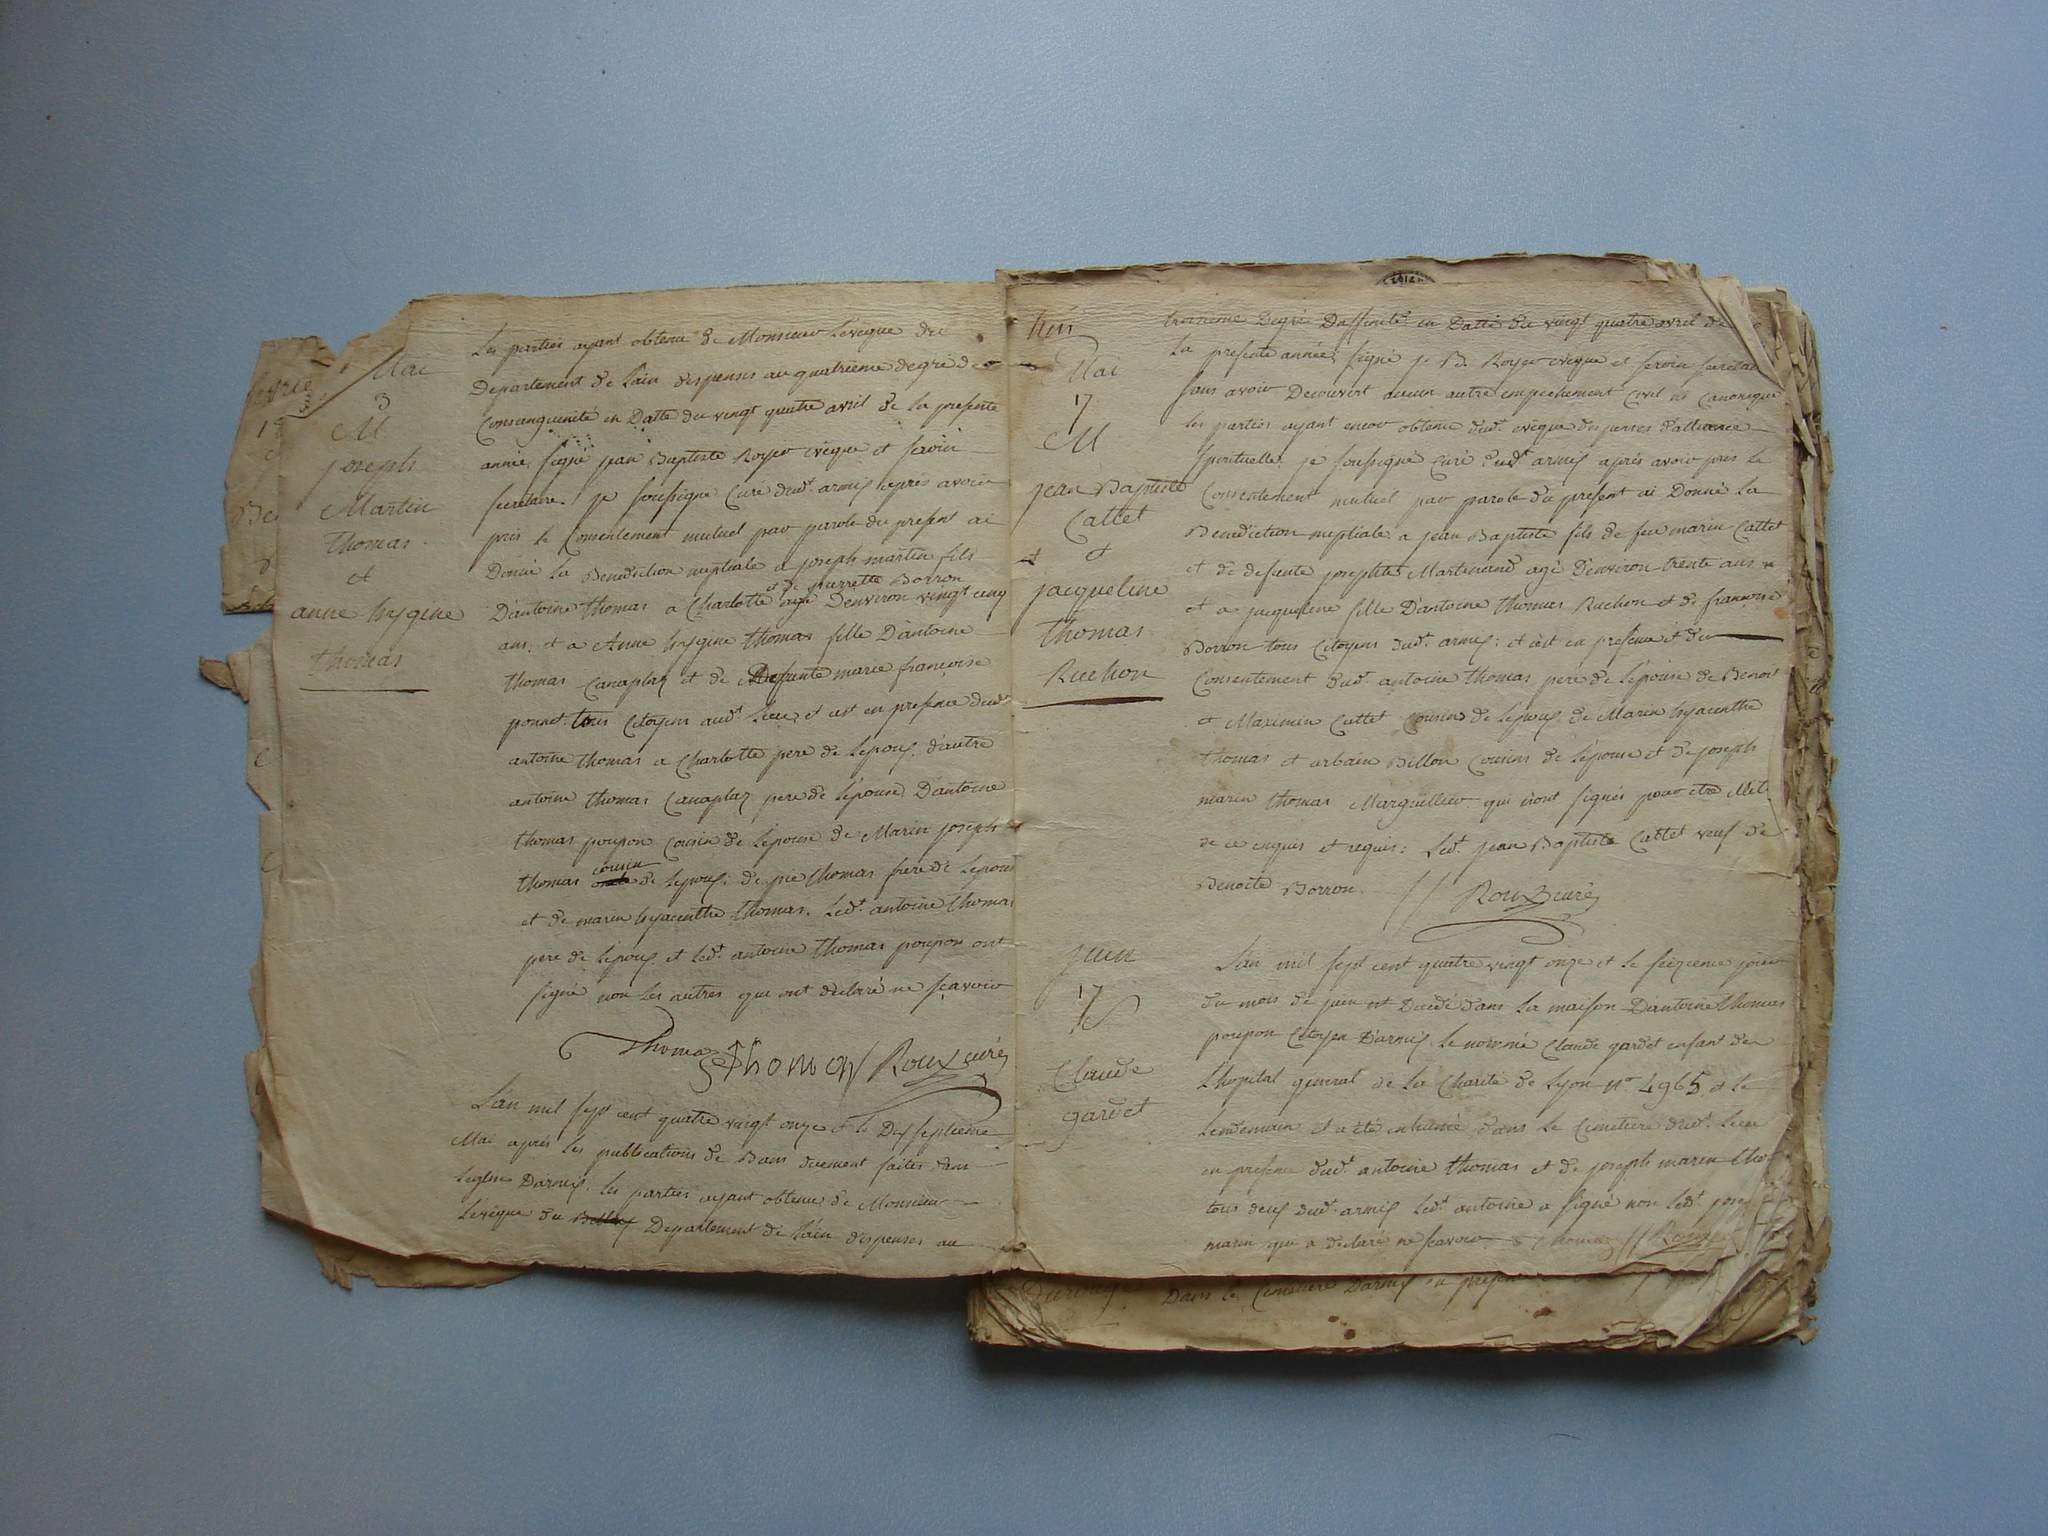 Mai
3
M
joseph
Martin
thomas
et
anne hygine
thomas
Les parties ayant obtenu de Monsieur Leveque du
Departement de Lain dispenses au quatrieme degré de
Consenguinité en Datte du vingt quatre avril de la presente
année signé jean Baptiste Royer eveque et
secretaire. je soussigné Curé dudt. armix apres avoir
pris le Consentement mutuel par parole du present ai
Donné la Benediction nuptiale a joseph martin fils
et de pierrette Borron
D'antoine thomas a Charlotte agé D'environ vingt cinq
ans. et a Anne hygine thomas fille D'antoine
thomas Canaplaz et de Defunte marie françoise
ponnet tous Citoyens audt. Lieu, et cest en presence dudt
antoine thomas a Charlotte pere de Lepoux. d'autre
antoine thomas Canaplaz pere de Lépouse D'antoine
thomas poupon Cousin de Lépouse de Marin joseph
cousin
thomas de Lepoux. de pre thomas frere de Lepoux
et de marin hyacenthe thomas. Ledt. antoine thomas
pere de Lépoux et ledt. antoine thomas poupon ont
signé non les autres qui ont déclaré ne sçavoir
Thomas thomas Roux curé
Lan mil sept cent quatre vingt onze et le Dix septieme
Mai après les publications de Bans duement faites dans
Leglise Darmix. les parties ayant obtenu de Monsieur
Lévêque du Departement de Lain dispenses au
Mai
17
M
jean Baptiste
Cattet
et
jacqueline
thomas
Ruchon
troisieme Degré Daffinité en Datte du vingt quatre avril de
la presente année, signé j. B. Royer eveque et
sans avoir Decouvert aucun autre empechement civil ni Canonique
les parties ayant encor obtenu dudt. evêque dispenses d'alliance
spirituelle. je soussigné Curé dudt armix après avoir pris le
Consentement mutuel par parole du present ai Donné la
Benediction nuptiale a jean Baptiste fils de feu marin Cattet
et de defunte josephte Martinand agé D'environ trente ans
et a jacqueline fille D'antoine thomas Ruchon et de françoise
Borron tous Citoyens dudt. armix: et cest en presence et du
Consentement dudt. antoine thomas pere de Lépouse de Benoit
et Maximin Cattet Cousins de Lépoux de Marin hyacenthe
thomas et urbain Billon Cousins de Lépouse et de joseph
marin thomas Marguillier qui n'ont signés pour
de ce enquis et requis: Ledt. jean Baptiste Cattet veuf de
Benoite Borron. Roux curé
juin
17
S
Claude
gardet
Lan mil sept cent quatre vingt onze et le seizieme jour
du mois de juin est Decedé dans la maison D'antoine thomas
poupon Citoyen D'armix le nommé Claude gardet enfant de
L'hopital general de La Charité de Lyon no 4965 et le
Lendemain il a été inhumé dans le Cimetiere dudt. Lieu
en presence dudt. antoine thomas et de joseph marin tho
tous deux dudt. armix Ledt. antoine a signé non Ledt.
marin qui a declaré ne sçavoir Thomas Roux
Dans le Cimetiere Darmix